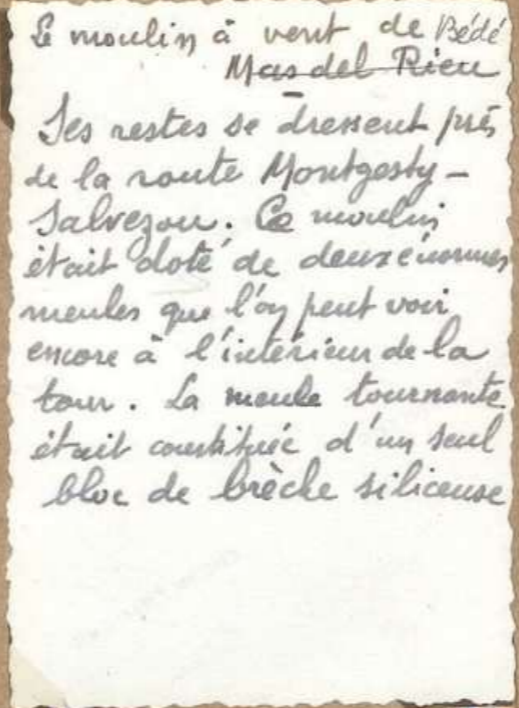 Le moulin à vent de Bédé
Mas del Rieu
Ses restes se dressent près
de la route Montgesty-
Salvezou. Ce moulin
était doté de deux énormes
meules que l'on peut voir
encore à l'intérieur de la
tour. La meule tournante
était constituée d'un seul
bloc de brèche siliceuse